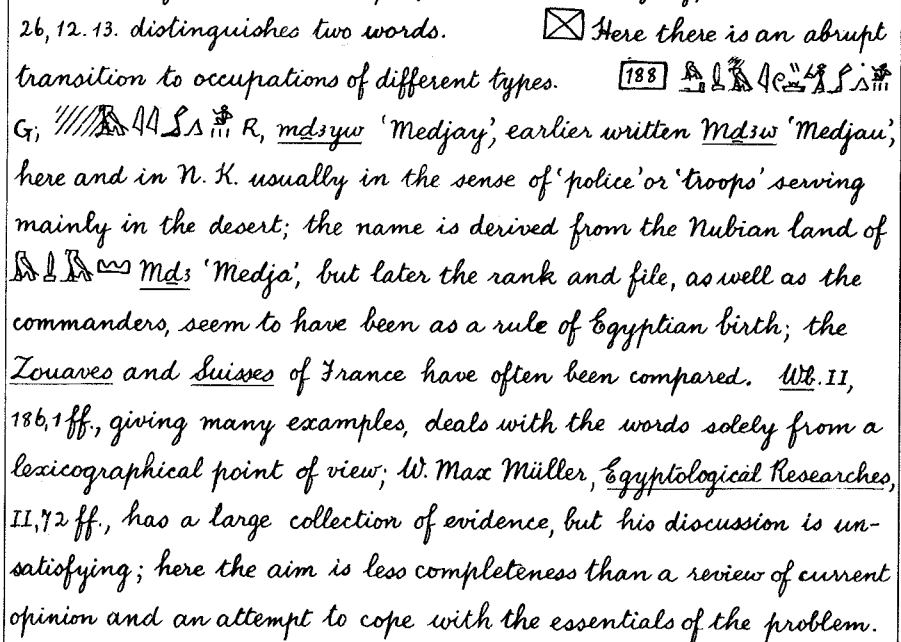 26, 12. 13. distinguishes two words. Here there is an abrupt
transition to occupations of different types. 188
G; R, mḏꜣyw ‘Medjay’, earlier written Mḏꜣw ‘Medjau’,
here and in N. K. usually in the sense of ‘police’ or ‘troops’ serving
mainly in the desert; the name is derived from the Nubian land of
Mḏꜣ ‘Medja’, but later the rank and file, as well as the
commanders, seem to have been as a rule of Egyptian birth; the
Zouaves and Suisses of France have often been compared. Wb. II,
186,1 ff., giving many examples, deals with the words solely from a
lexicographical point of view; W. Max Müller, Egyptological Researches,
II, 72 ff., has a large collection of evidence, but his discussion is un-
satisfying; here the aim is less completeness than a review of current
opinion and an attempt to cope with the essentials of the problem.